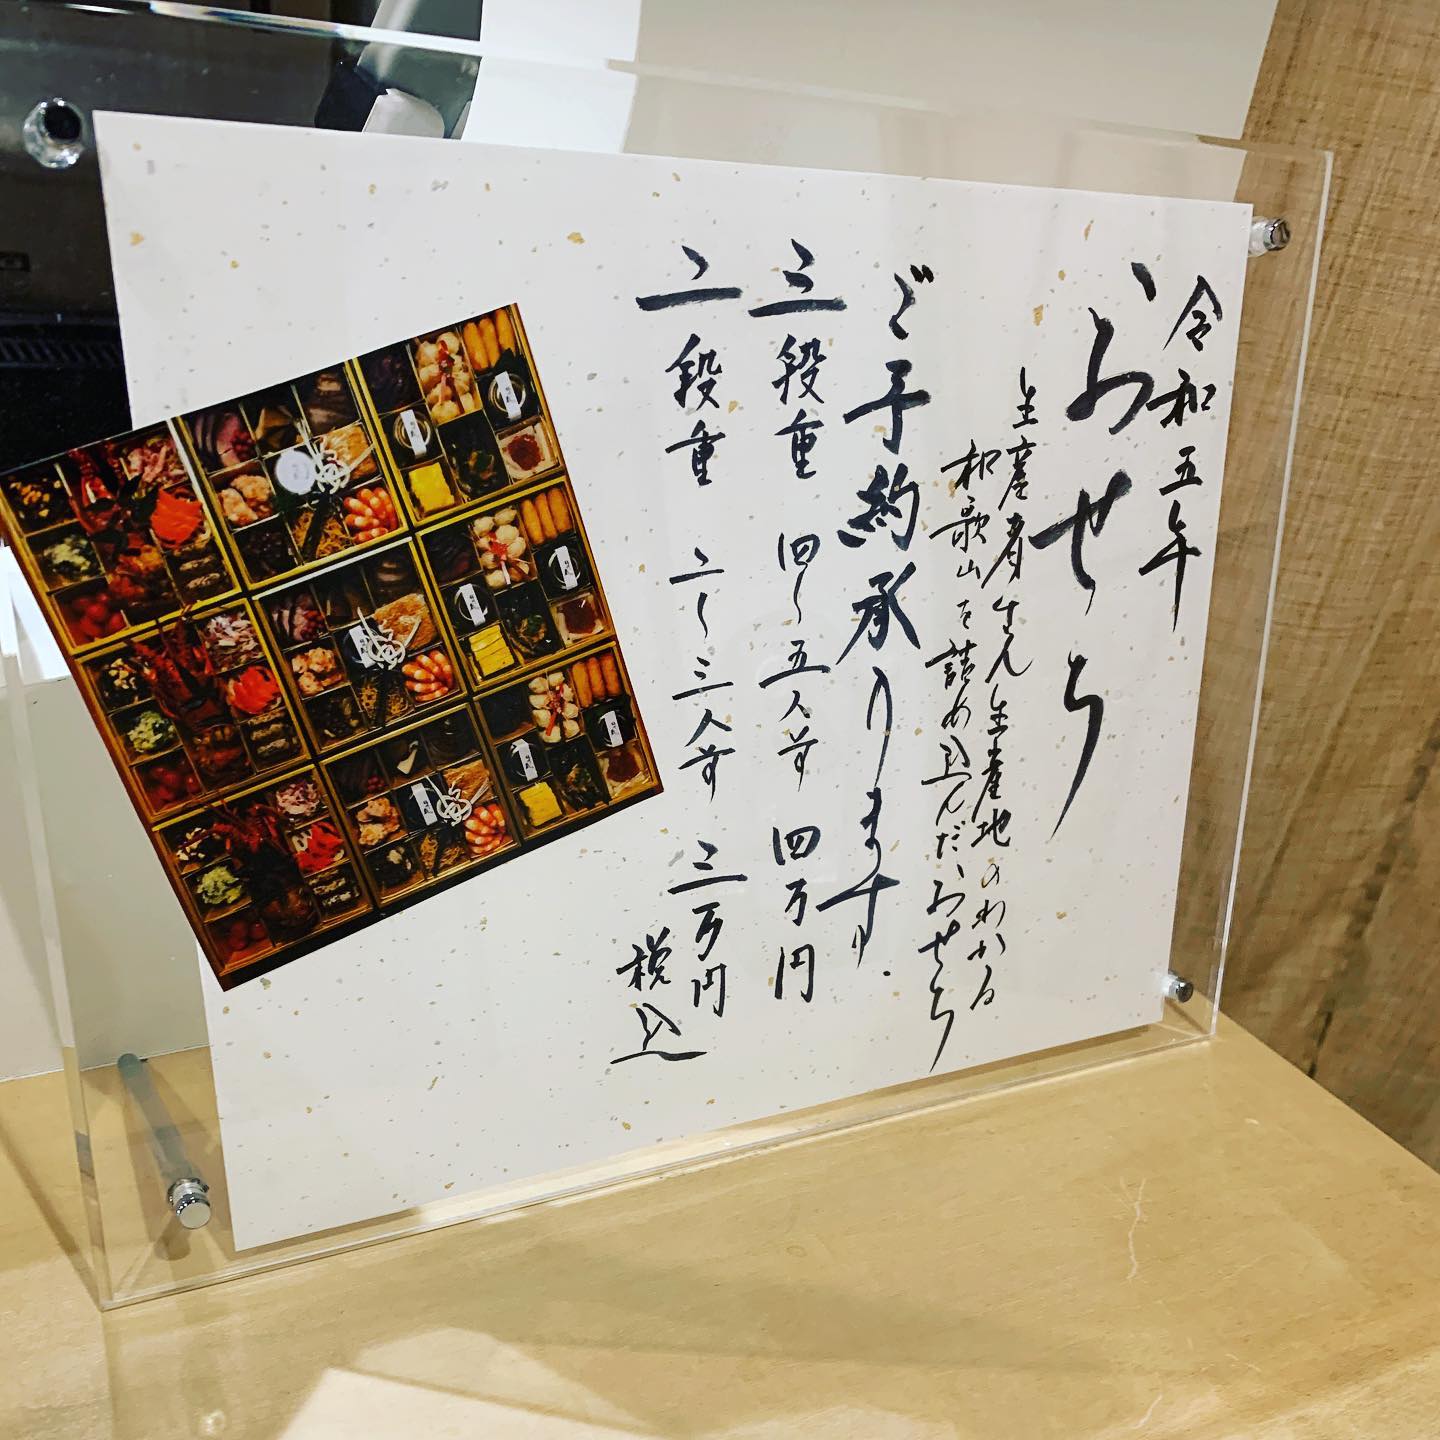 令和五年
おせち
生産者さん生産地のわかる
和歌山を詰め込んだおせち
ご予約承ります。
三段重 四〜五人前 四万円
二段重 二〜三人前 三万円
税込